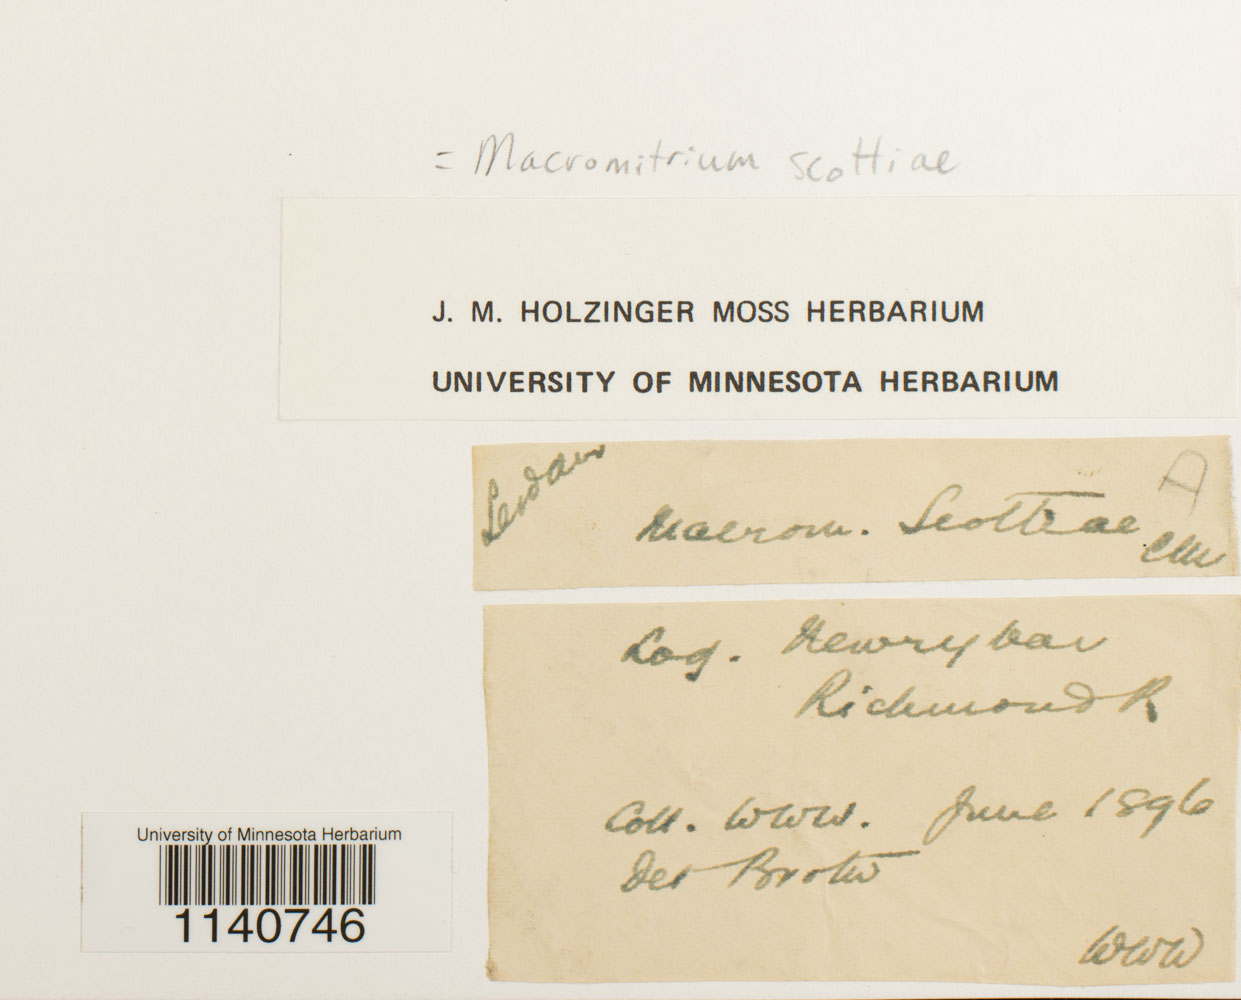 = Macromitrium scottiae
J. M. HOLZINGER MOSS HERBARIUM
UNIVERSITY OF MINNESOTA HERBARIUM
A
Macrom. Scottiae
CM
Loq. Newrybar
Richmond R
Coll. WWW. June 1896
Det Broth
WWW
University of Minnesota Herbarium
1140746